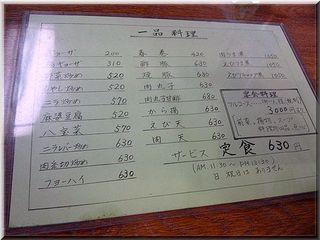 一品料理
ギョーザ 200
ギョーザ 310
野菜炒め 520
もやし炒め 520
ニラ炒め 570
麻婆豆腐 520
八宝菜 570
ニラレバー炒め 630
肉糸切炒め 630
フヨーハイ 630
春巻 420
酢豚 630
焼豚 630
肉丸子 630
肉丸子甘酢 630
から揚 630
えび天 630
肉天 630
肉うま煮 1050
1050
1050
宴会料理
フルコース
3000円より
サービス定食630円
(AM.11:30〜PM.13:30)
日、祝日はありません